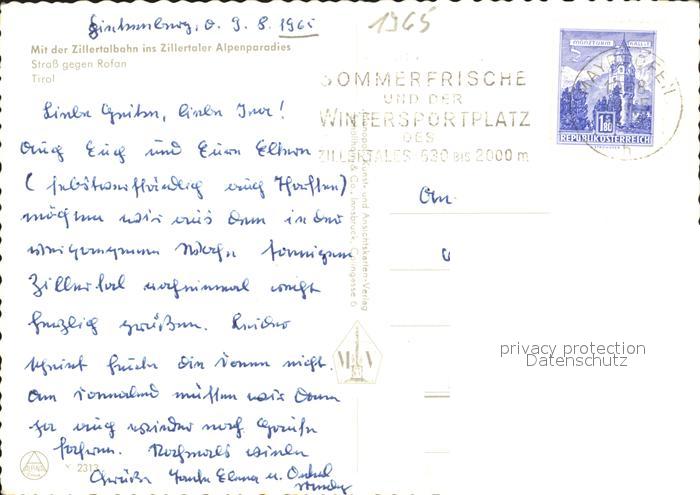 d. 9.8.1965
1965
Mit der Zillertalbahn ins Zillertaler Alpenparadies
Straß gegen Rofan
Tirol
MÜNZTURM HALL I. T.
1.80
REPUBLIK ÖSTERREICH
MAYRHOFEN
SOMMERFRISCHE
UND DER
WINTERSPORTPLATZ
DES
ZILLERTALES 630 BIS 2000 m
Liebe liebe
Auch Euch und Euren Eltern
(selbstverständlich auch Thorsten)
möchten wir aus dem in der
vergangenen Woche sonnigen
Zillertal noch einmal recht
herzlich grüßen. Leider
scheint heute die Sonne nicht.
Am Sonnabend müssen wir dann
ja auch wieder nach Hause
fahren. Nochmals viele
Grüße Tante u. Onkel
An
M V
2313
privacy protection
Datenschutz